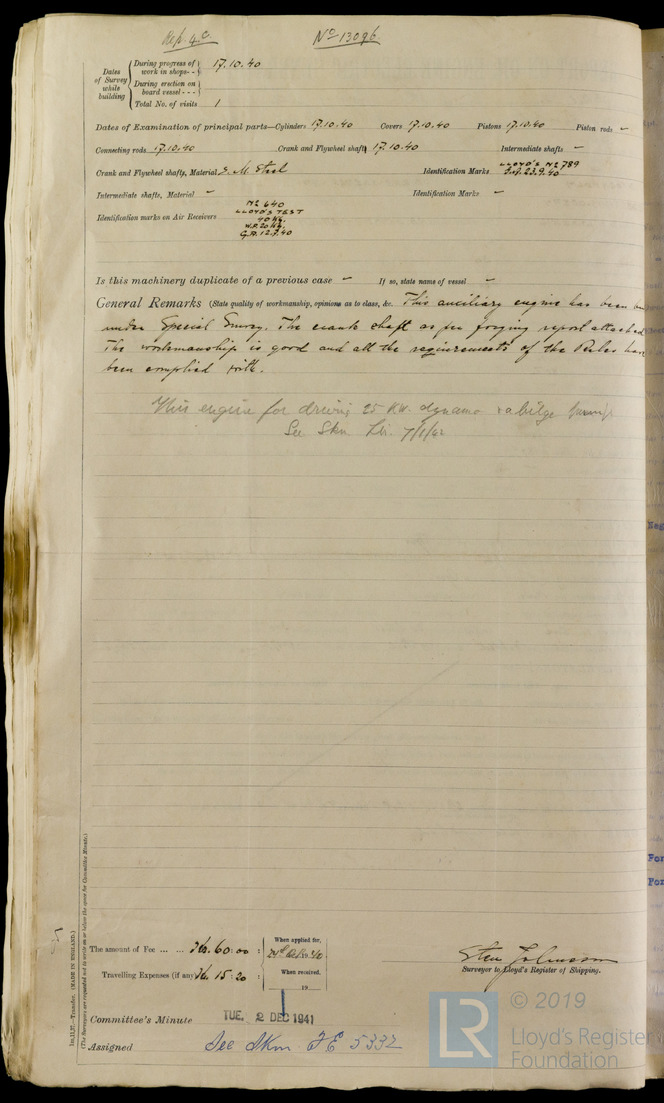 Rep. 4.c. No 13096.
Dates of Survey while building
During progress of work in shops - - 17.10.40
During erection on board vessel - - -
Total No. of visits 1
Dates of Examination of principal parts—Cylinders 17.10.40 Covers 17.10.40 Pistons 17.10.40 Piston rods –
Connecting rods 17.10.40 Crank and Flywheel shafts 17.10.40 Intermediate shafts –
Crank and Flywheel shafts, Material S. M. Steel Identification Marks LLOYD'S No 789
23.9.40
Intermediate shafts, Material – Identification Marks –
Identification marks on Air Receivers No 640
LLOYD'S TEST
40 Kg.
W.P. 20 Kg.
G.A. 12.7.40
Is this machinery duplicate of a previous case – If so, state name of vessel –
General Remarks (State quality of workmanship, opinions as to class, &c. This auxiliary engine has been
under Special Survey. The crank shaft as per forging report attached
The workmanship is good and all the requirements of the Rules have
been complied with.
This engine for driving 25 KW. dynamo & a bilge pump
See Skm Ltr. 7/1/42
1m.11.37.—Transfer. (MADE IN ENGLAND.)
(The Surveyors are requested not to write on or below the space for Committee Minute.)
The amount of Fee ... ... Kr. 60:00 : When applied for,
Travelling Expenses (if any) Kr. 15:20 : When received,
19
Surveyor to Lloyd's Register of Shipping.
Committee's Minute TUE. 2 DEC 1941
Assigned See Skm FE 5332
LR © 2019
Lloyd's Register
Foundation